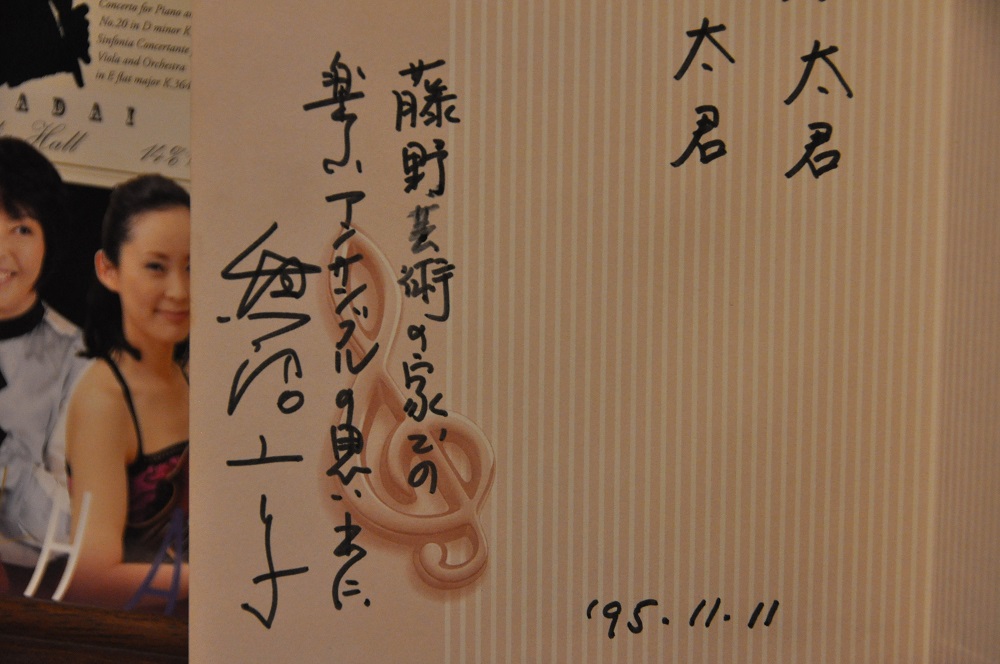 Concerto for Piano a
No.20 in D minor K
Sinfonia Concertante
Viola and Orchestra
in E flat major K.364
ADAI
Hall
太君
太君
藤野芸術の家での
楽しいアンサンブルの思い出に.
'95.11.11